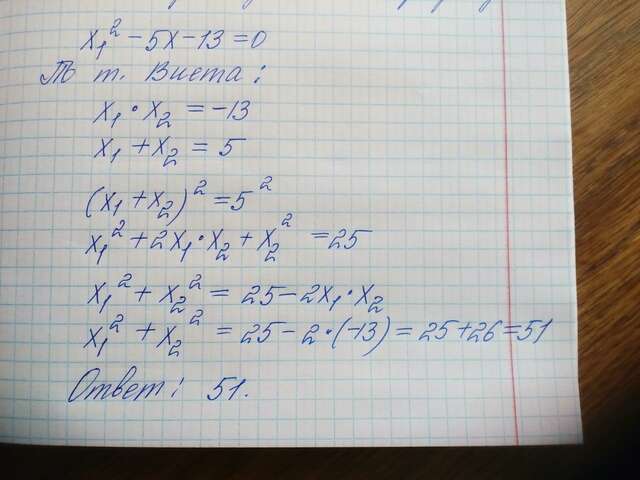 x₁² − 5x − 13 = 0
т. Виета:
x₁ · x₂ = −13
x₁ + x₂ = 5
(x₁ + x₂)² = 5²
x₁² + 2x₁ · x₂ + x₂² = 25
x₁² + x₂² = 25 − 2x₁ · x₂
x₁² + x₂² = 25 − 2 · (−13) = 25 + 26 = 51
Ответ: 51.